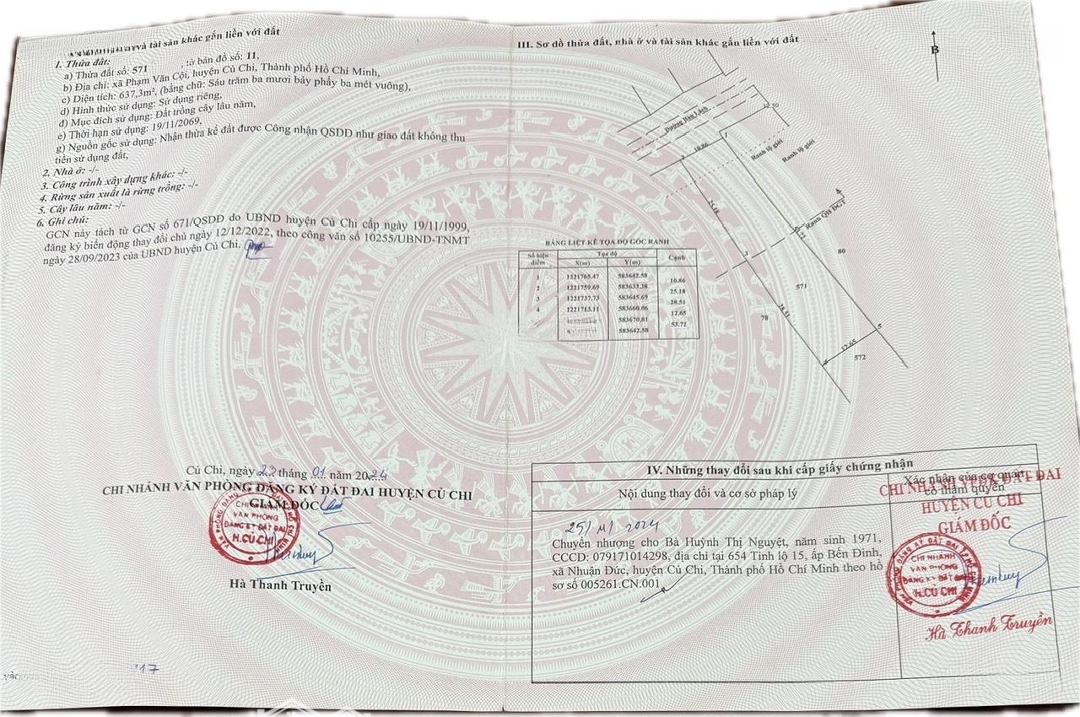 và tài sản khác gắn liền với đất
1. Thửa đất:
a) Thửa đất số: 571 , tờ bản đồ số: 11,
b) Địa chỉ: xã Phạm Văn Cội, huyện Củ Chi, Thành phố Hồ Chí Minh,
c) Diện tích: 637,3m², (bằng chữ: Sáu trăm ba mươi bảy phẩy ba mét vuông),
d) Hình thức sử dụng: Sử dụng riêng,
đ) Mục đích sử dụng: Đất trồng cây lâu năm,
e) Thời hạn sử dụng: 19/11/2069,
g) Nguồn gốc sử dụng: Nhận thừa kế đất được Công nhận QSDĐ như giao đất không thu
tiền sử dụng đất,
2. Nhà ở: -/-
3. Công trình xây dựng khác: -/-
4. Rừng sản xuất là rừng trồng: -/-
5. Cây lâu năm: -/-
6. Ghi chú:
GCN này tách từ GCN số 671/QSDĐ do UBND huyện Củ Chi cấp ngày 19/11/1999,
đăng ký biến động thay đổi chủ ngày 12/12/2022, theo công văn số 10255/UBND-TNMT
ngày 28/09/2023 của UBND huyện Củ Chi.
Củ Chi, ngày 22 tháng 01 năm 2024
CHI NHÁNH VĂN PHÒNG ĐĂNG KÝ ĐẤT ĐAI HUYỆN CỦ CHI
GIÁM ĐỐC
CHI NHÁNH
VĂN PHÒNG
ĐĂNG KÝ ĐẤT ĐAI
H.CỦ CHI
Hà Thanh Truyền
'17
III. Sơ đồ thửa đất, nhà ở và tài sản khác gắn liền với đất
B
Ranh lộ giới
Ranh lộ giới
1
2
10.86
25.18
3
28.51
Ranh QH ĐGT
80
571
78
5
4
12.65
572
BẢNG LIỆT KÊ TỌA ĐỘ GÓC RANH
Số hiệu điểm Tọa độ Cạnh
X(m) Y(m)
1 1221765.47 583642.58
10.86
2 1221759.69 583633.38
25.18
3 1221737.73 583645.69
28.51
4 1221713.11 583660.06
12.65
583670.81
53.71
583642.58
IV. Những thay đổi sau khi cấp giấy chứng nhận
Nội dung thay đổi và cơ sở pháp lý
Xác nhận của cơ quan
có thẩm quyền
Chuyển nhượng cho Bà Huỳnh Thị Nguyệt, năm sinh 1971,
CCCD: 079171014298, địa chỉ tại 654 Tỉnh lộ 15, ấp Bến Đình,
xã Nhuận Đức, huyện Củ Chi, Thành phố Hồ Chí Minh theo hồ
sơ số 005261.CN.001
HUYỆN CỦ CHI
GIÁM ĐỐC
CHI NHÁNH
VĂN PHÒNG
ĐĂNG KÝ ĐẤT ĐAI
H.CỦ CHI
Hà Thanh Truyền